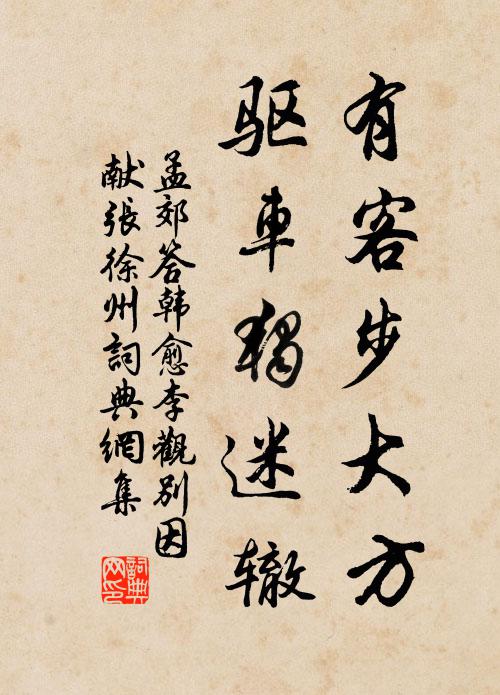 有客步大方
驱車獨迷辙
孟郊答韩愈李觀别因
献張徐州詞典網集
詞典
网印